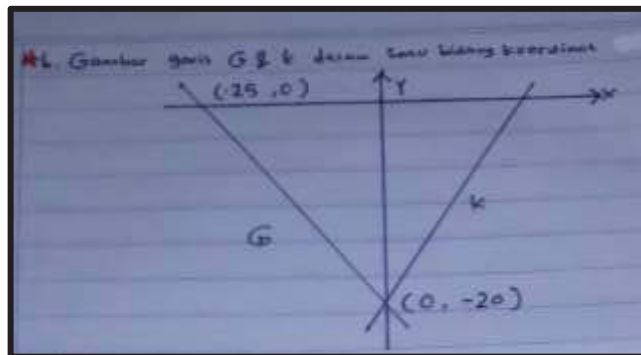 b. Gambar garis G & k dalam satu bidang koordinat
(-25, 0)
Y
X
G
k
(0, -20)